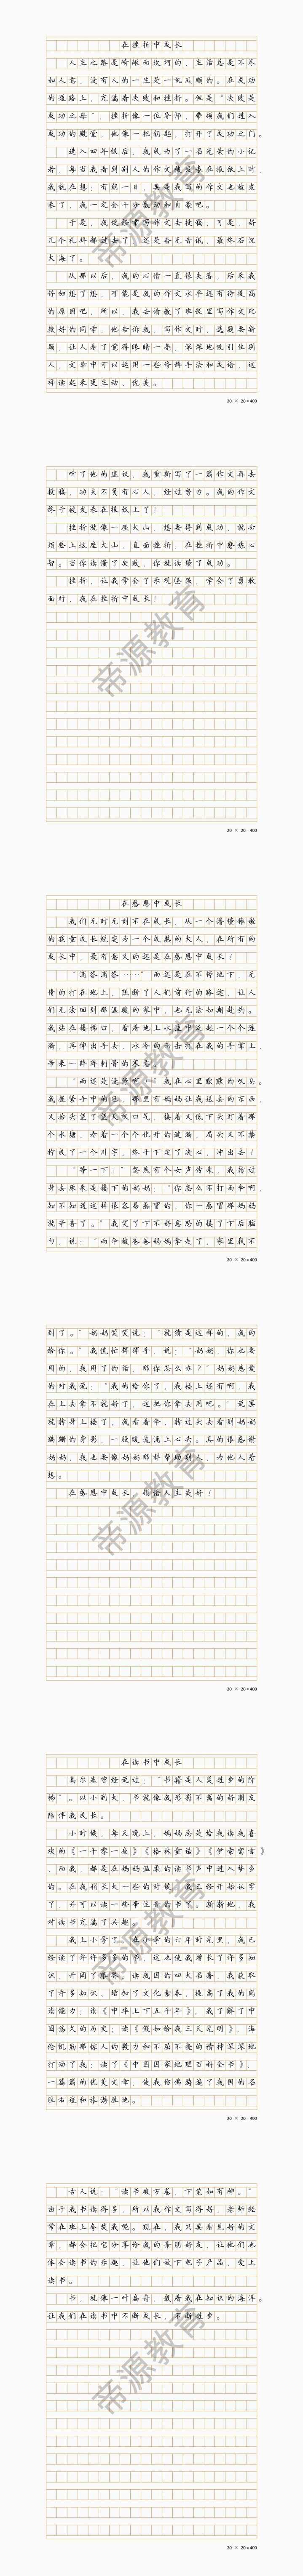 在挫折中成长
人生之路是崎岖而坎坷的，生活总是不尽
如人意，没有人的一生是一帆风顺的。在成功
的道路上，充满着失败和挫折。但是“失败是
成功之母”，挫折像一位导师，带领我们进入
成功的殿堂，他像一把钥匙，打开了成功之门。
进入四年级后，我成为了一名光荣的小记
者，每当我看到别人的作文被发表在报纸上时，
我就在想：有朝一日，要是我写的作文也被发
表了，我一定会十分激动和自豪吧。
于是，我便经常写作文去投稿，可是，好
几个礼拜都过去了，还是杳无音讯，最终石沉
大海了。
从那以后，我的心情一直很失落，后来我
仔细想了想，可能是我的作文水平还有待提高
的原因吧，所以，我去请教了班级里写作文比
较好的同学，他告诉我，写作文时，选题要新
颖，让人看了觉得眼睛一亮，深深地吸引住别
人，文章中可以运用一些修辞手法和成语，这
样读起来更生动、优美。
20 × 20 = 400
听了他的建议，我重新写了一篇作文再去
投稿，功夫不负有心人，经过努力。我的作文
终于被发表在报纸上了！
挫折就像一座大山，想要得到成功，就必
须登上这座大山，直面挫折，在挫折中磨练心
智。当你读懂了失败，你就读懂了成功。
挫折，让我学会了你视坚强，学会了勇敢
面对，我在挫折中成长！
20 × 20 = 400
在感恩中成长
我们无时无刻不在成长，从一个懵懂稚嫩
的孩童成长蜕变为一个成熟的大人，在所有的
成长中，最有意义的还是在感恩中成长！
“滴答滴答……”雨还是在不停地下，无
情的打在地上，阻断了人们前行的路途，让人
们无法回到那温暖的家中，也无法如期赴约。
我站在楼梯口，看着地上水洼中泛起一个个涟
漪，再伸出手去，冰冷的雨击打在我的手掌上，
带来一阵阵刺骨的寒意。
“雨还是没停啊。”我在心里默默的叹息。
我握紧手中的包，那里有妈妈让我送去的东西，
又抬头望了望天叹口气，接着又低下头盯着那
个水塘，看着一个个化开的涟漪，眉头又不禁
拧成了一个川字，终于下定了决心，冲出去！
“等一下！”忽然有个女声传来，我转过
身去原来是楼下的奶奶：“你怎么不打雨伞啊，
知不知道这样很容易感冒的，你一感冒那妈妈
就辛苦了。”我笑了下不好意思的摸了下后脑
勺，说：“雨伞被爸爸妈妈拿走了，家里找不
20 × 20 = 400
到了。”奶奶笑笑说：“就猜是这样的，我的
给你。”我慌忙挥挥手，说：“奶奶，你也要
用的，我用了的话，那你怎么办？”奶奶慈爱
的对我说：“我的给你了，我楼上还有啊，我
在上去拿不就好了，这把你拿去用吧。”说罢
就转身上楼了，我看着伞，转过头去看到奶奶
蹒跚的身影，一股暖流涌上心头。真的很感谢
奶奶，我也要像奶奶那样帮助别人，为他人着
想。
在感恩中成长，领悟人生美好！
20 × 20 = 400
在读书中成长
高尔基曾经说过：“书籍是人类进步的阶
梯”。从小到大，书就像我形影不离的好朋友
陪伴我成长。
小时候，每天晚上，妈妈总是给我读我喜
欢的《一千零一夜》《格林童话》《伊索寓言》
，而我，都是在妈妈温柔的读书声中进入梦乡
的。在我稍长大一些的时候，我已经开始认字
了，并可以读一些带注音的书了。渐渐地，我
对读书充满了兴趣。
我上小学了。在小学的六年时光里，我已
经读了许许多多的书，这也使我增长了许多知
识，开阔了眼界。读我国的四大名著，我获取
了许多知识，增加了文化素养，提高了我的阅
读能力；读《中华上下五千年》，我了解了中
国悠久的历史；读《假如给我三天光明》，海
伦凯勒那惊人的毅力和不屈不挠的精神深深地
打动了我；读了《中国国家地理百科全书》，
一篇篇的优美文章，使我仿佛游遍了我国的名
胜古迹和旅游胜地。
20 × 20 = 400
古人说：“读书破万卷，下笔如有神。”
由于我书读得多，所以我作文写得好，老师经
常在班上夸奖我呢。现在，我只要看见好的文
章，都会把它分享给我的亲朋好友，让他们也
体会读书的乐趣，让他们放下电子产品，爱上
读书。
书，就像一叶扁舟，载着我在知识的海洋。
让我们在读书中不断成长，不断进步。
20 × 20 = 400
帝源教育
帝源教育
帝源教育
帝源教育
帝源教育
帝源教育